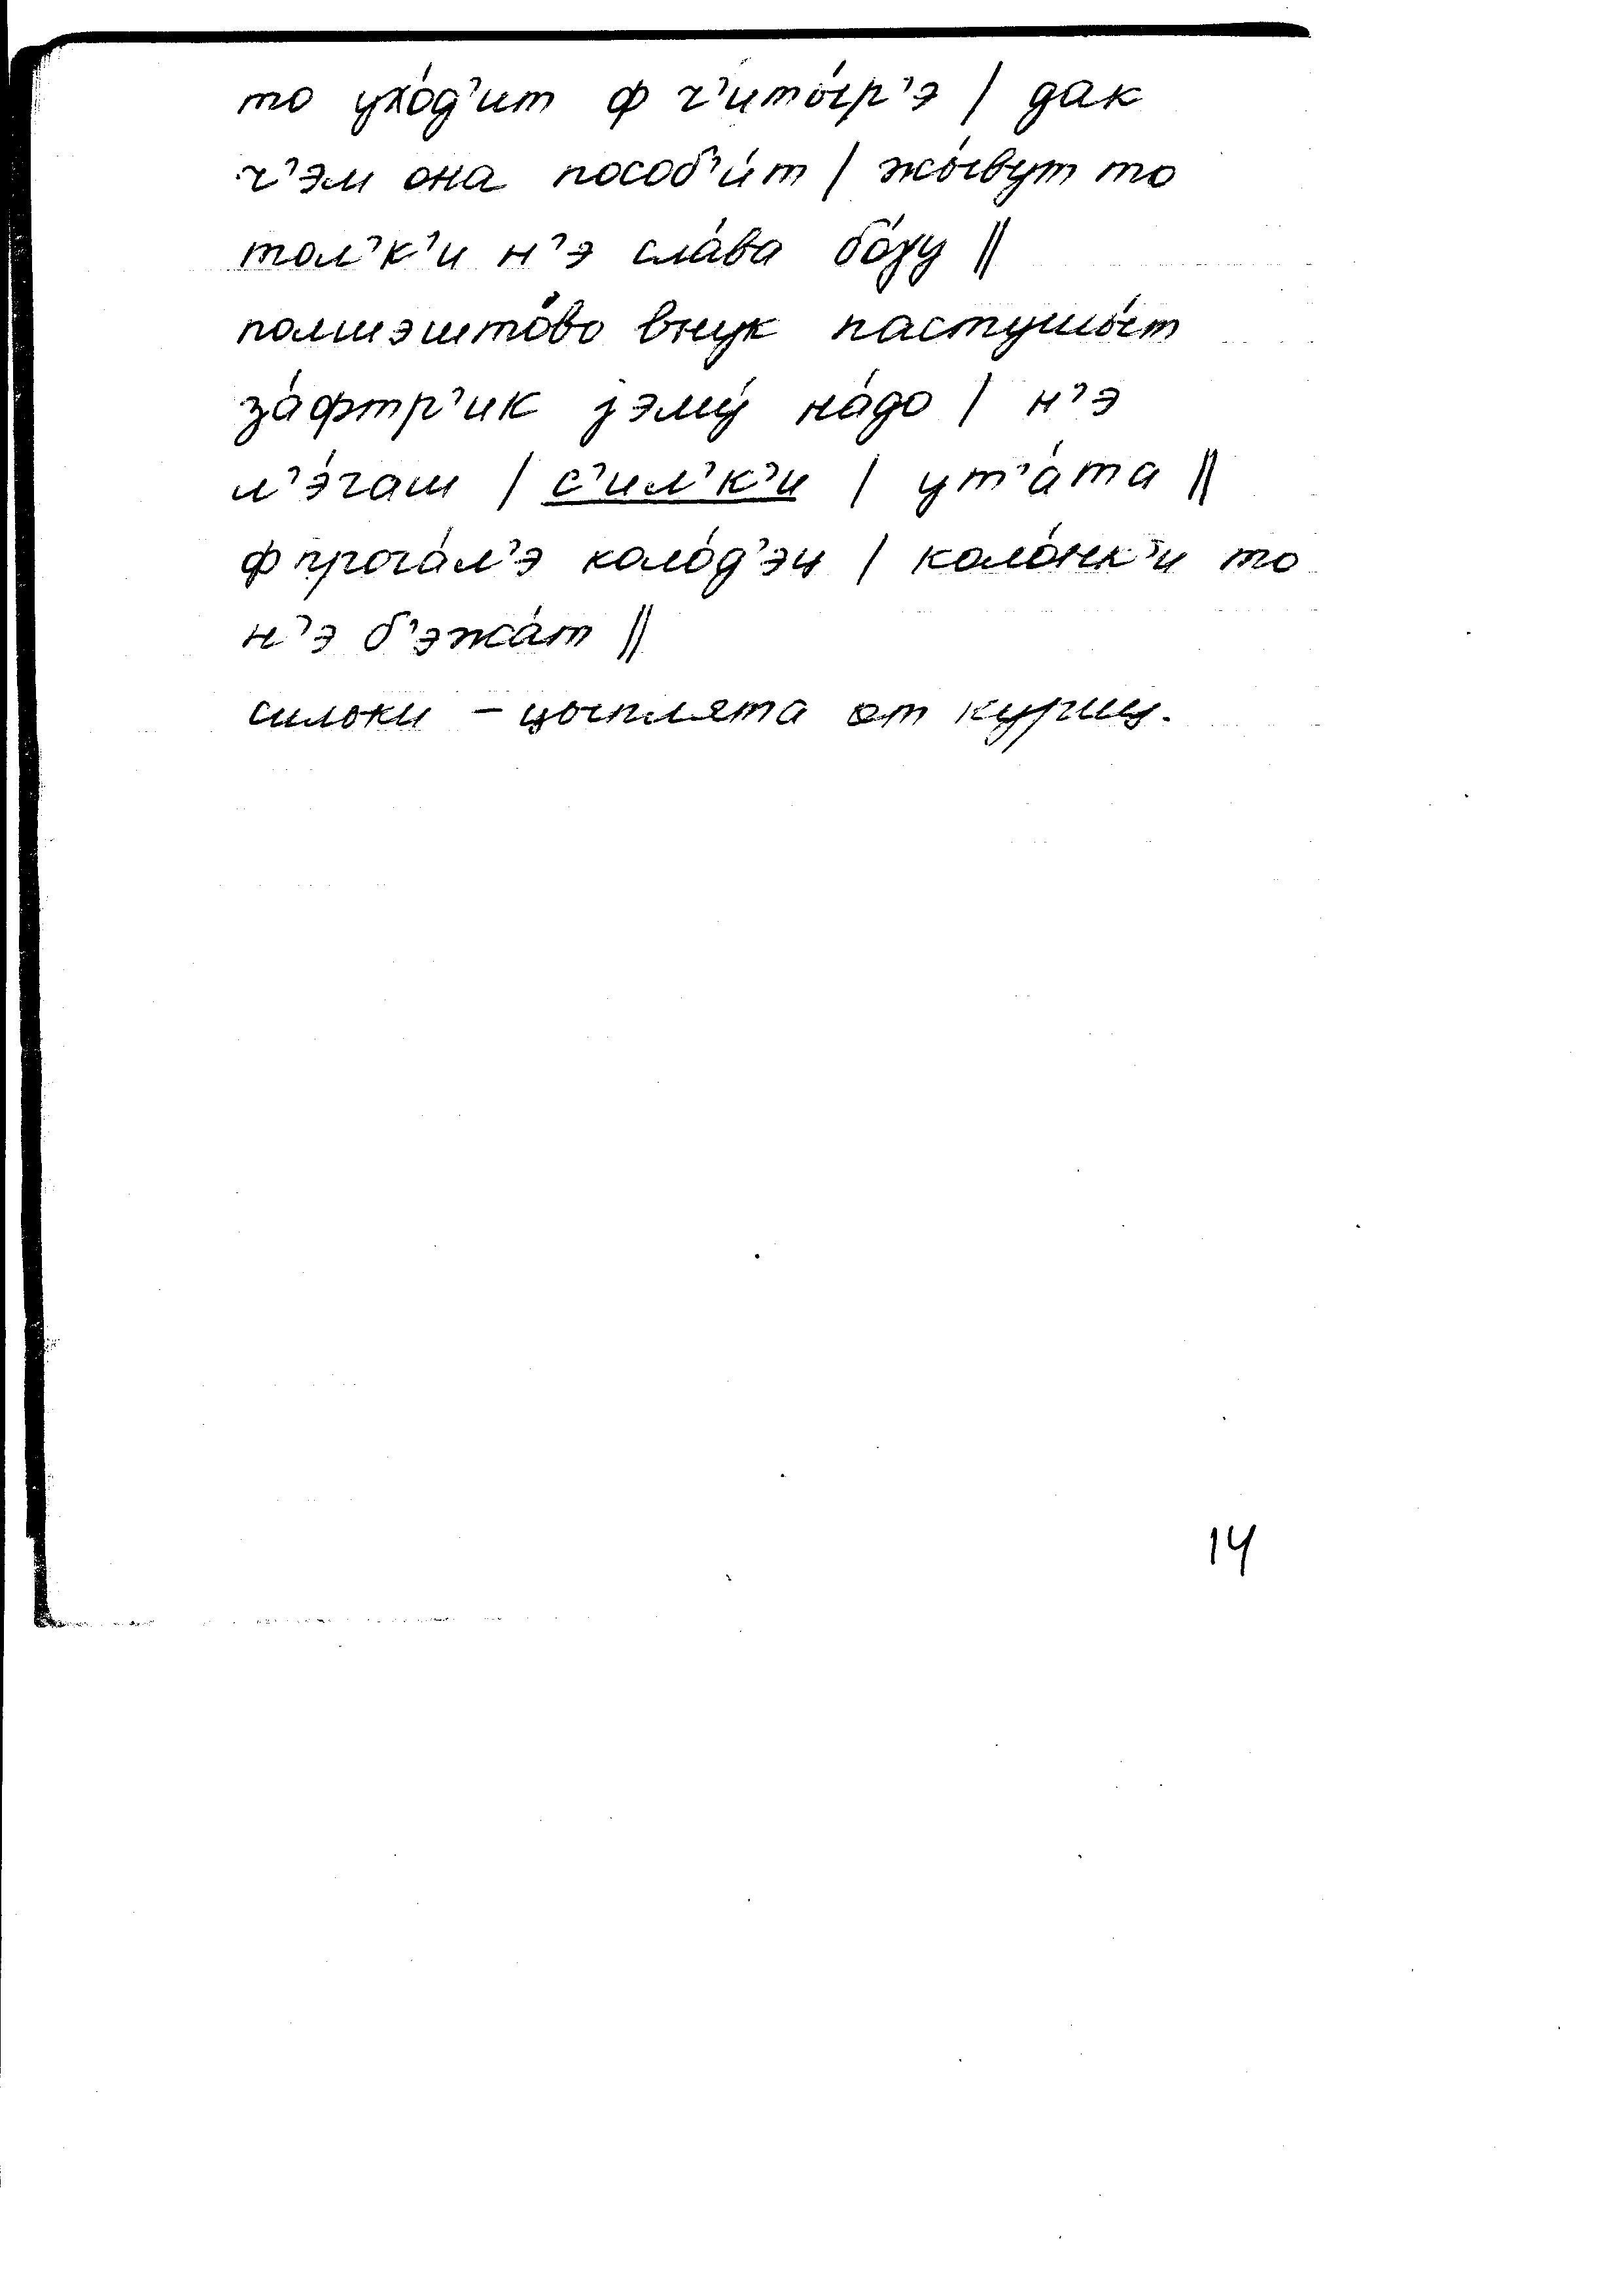 то ухо́д'ит ф ч'иты́р'э / дак
ч'эм она пособ'и́т / жы́вут то
тол'к'и н'э сла́ва бо́γу //
полшэшто́во внук пастушы́т
за́фтр'ик јэму́ на́до / н'э
л'э́гаш / с'ил'к'и / ут'а́та //
ф прога́л'э коло́д'эц / коло́нк'и то
н'э б'эжа́т //
сильки – цыплята от куриц.
14